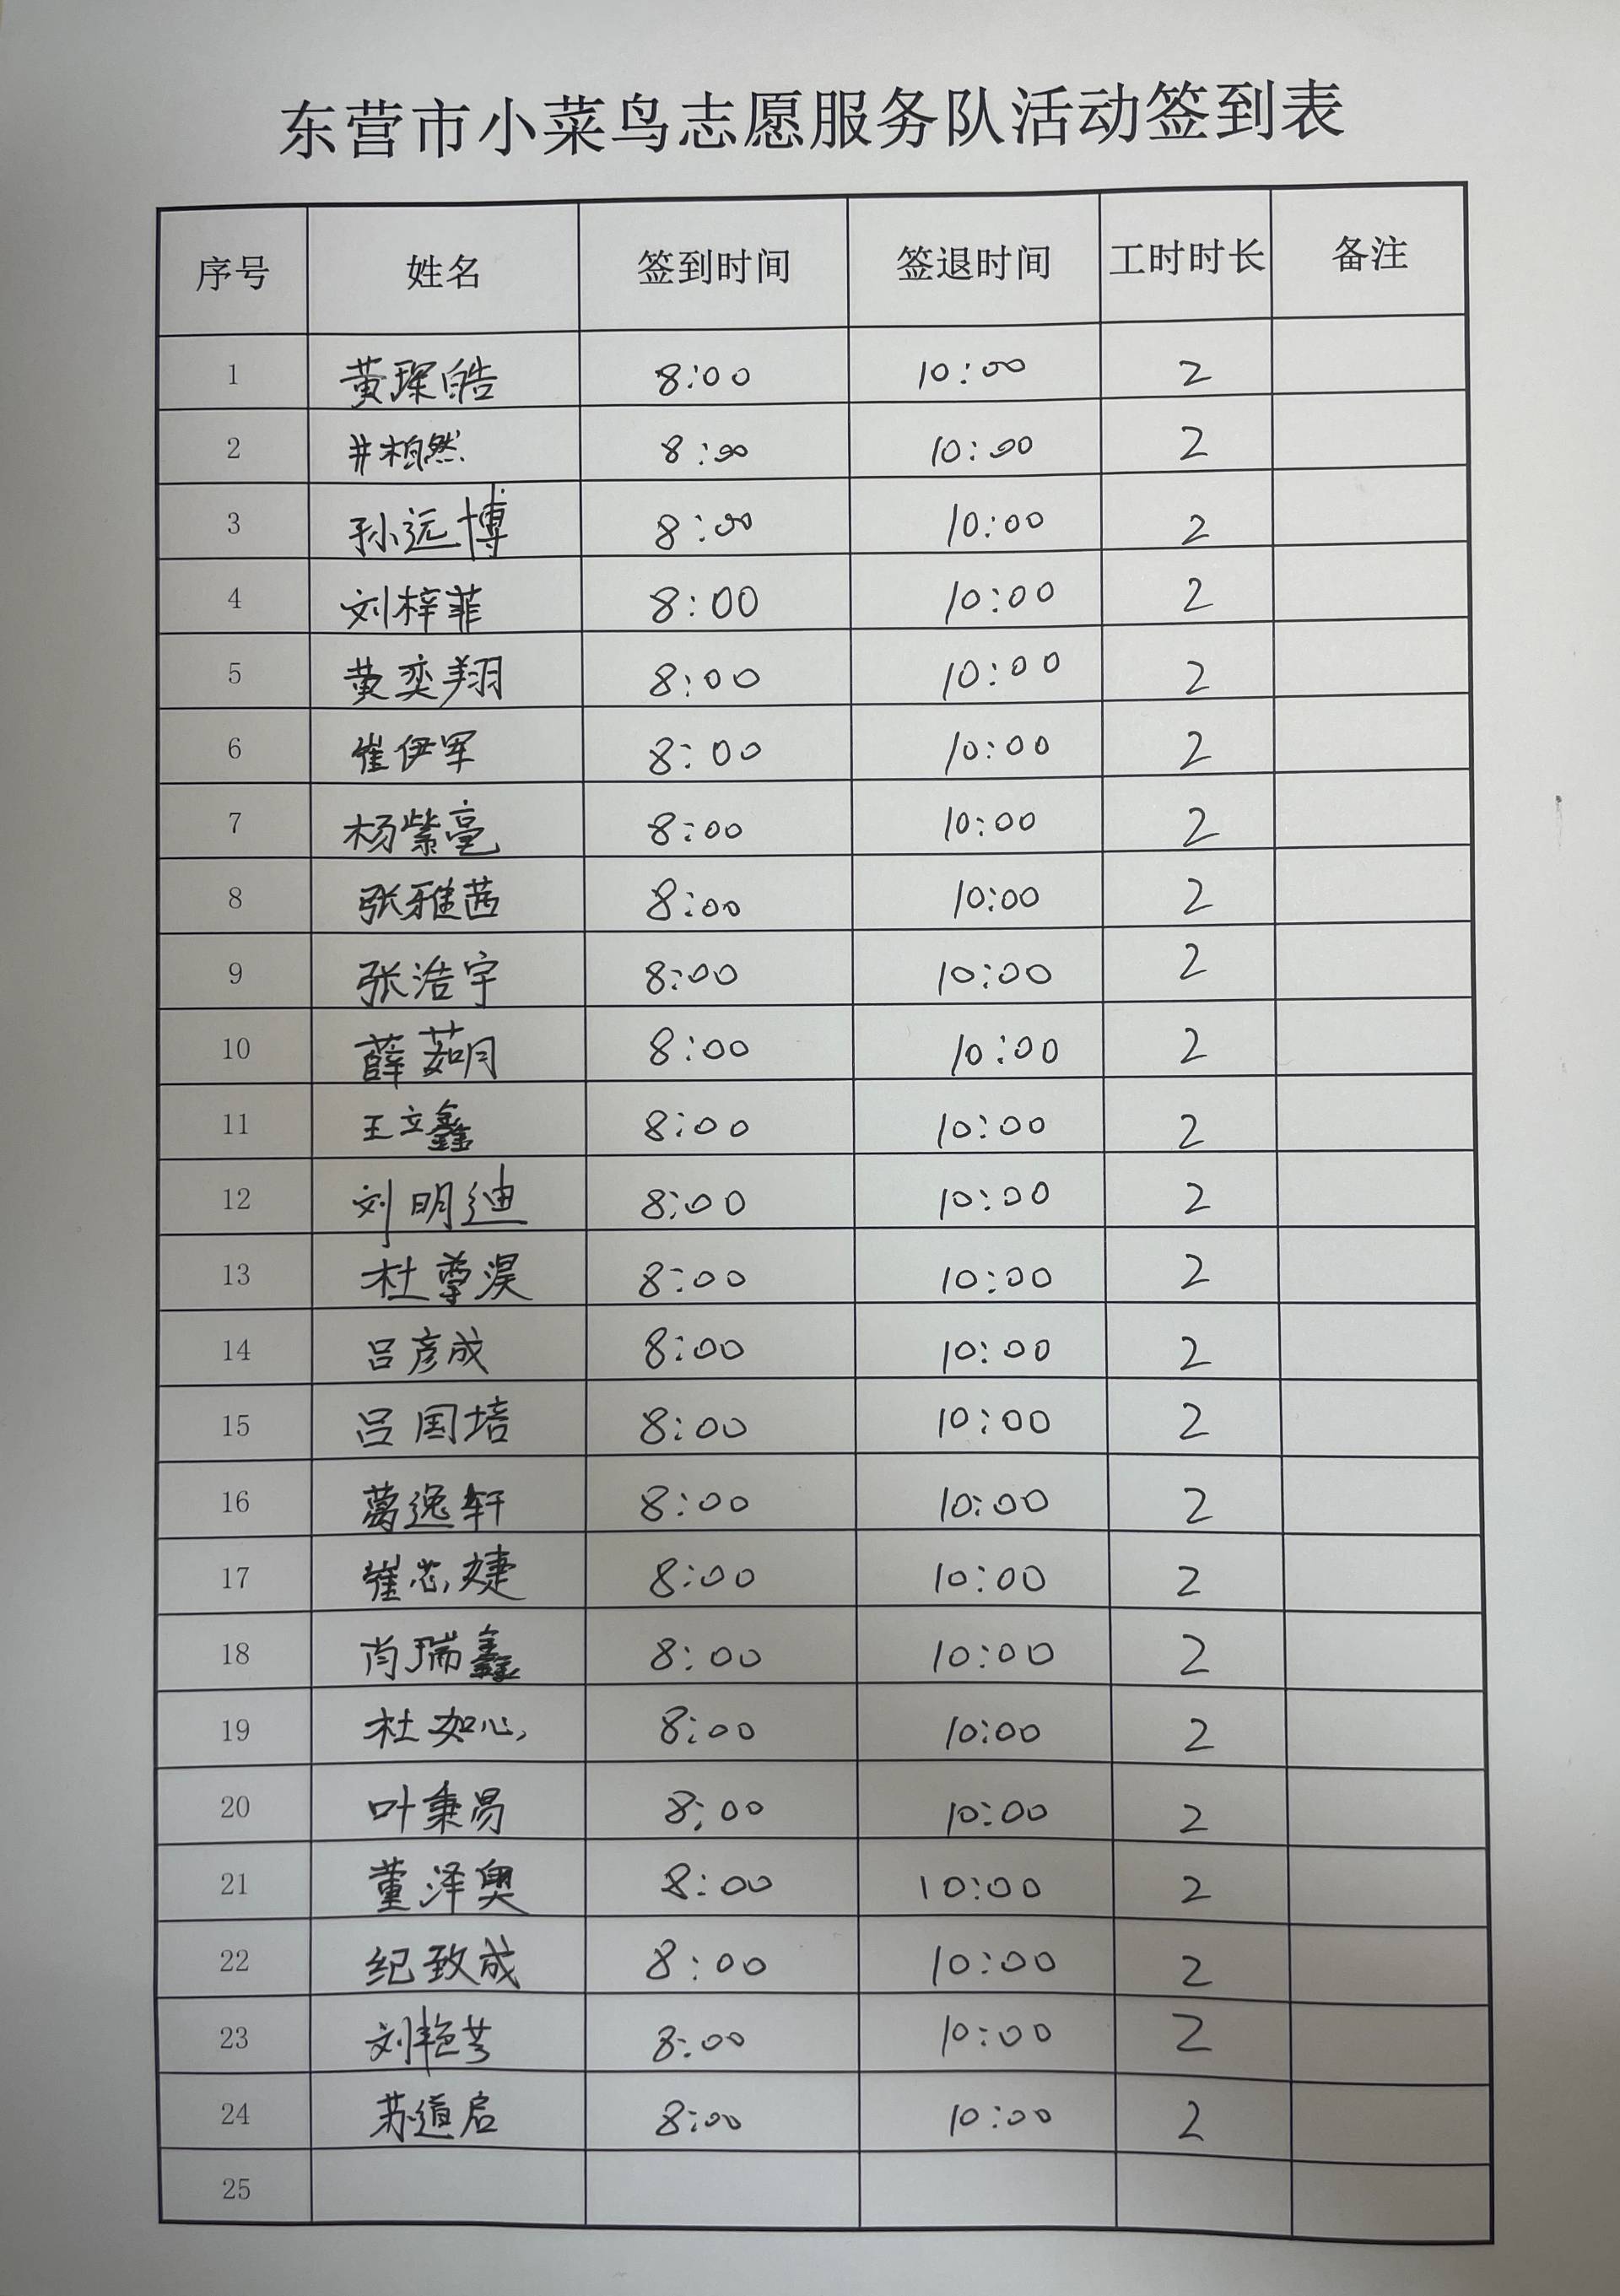 东营市小菜鸟志愿服务队活动签到表
序号 姓名 签到时间 签退时间 工时时长 备注
1 黄琛皓 8:00 10:00 2
2 井柏然 8:00 10:00 2
3 孙远博 8:00 10:00 2
4 刘梓菲 8:00 10:00 2
5 黄奕翔 8:00 10:00 2
6 崔伊军 8:00 10:00 2
7 杨紫亳 8:00 10:00 2
8 张雅茜 8:00 10:00 2
9 张浩宇 8:00 10:00 2
10 薛茹月 8:00 10:00 2
11 王立鑫 8:00 10:00 2
12 刘明迪 8:00 10:00 2
13 杜尊淏 8:00 10:00 2
14 吕彦成 8:00 10:00 2
15 吕国培 8:00 10:00 2
16 葛逸轩 8:00 10:00 2
17 崔芯婕 8:00 10:00 2
18 肖瑞鑫 8:00 10:00 2
19 杜如心 8:00 10:00 2
20 叶秉易 8:00 10:00 2
21 董泽奥 8:00 10:00 2
22 纪致成 8:00 10:00 2
23 刘艳芳 8:00 10:00 2
24 苏道启 8:00 10:00 2
25